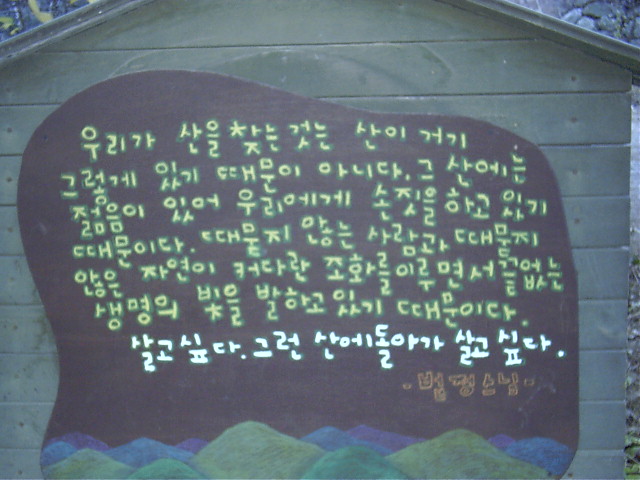 우리가 산을 찾는 것은 산이 거기
그렇게 있기 때문이 아니다. 그 산에는
젊음이 있어 우리에게 손짓을 하고 있기
때문이다. 때묻지 않는 사람과 때묻지
않은 자연이 커다란 조화를 이루면서 끝없는
생명의 빛을 발하고 있기 때문이다.
살고 싶다. 그런 산에 돌아가 살고 싶다.
- 법정스님 -